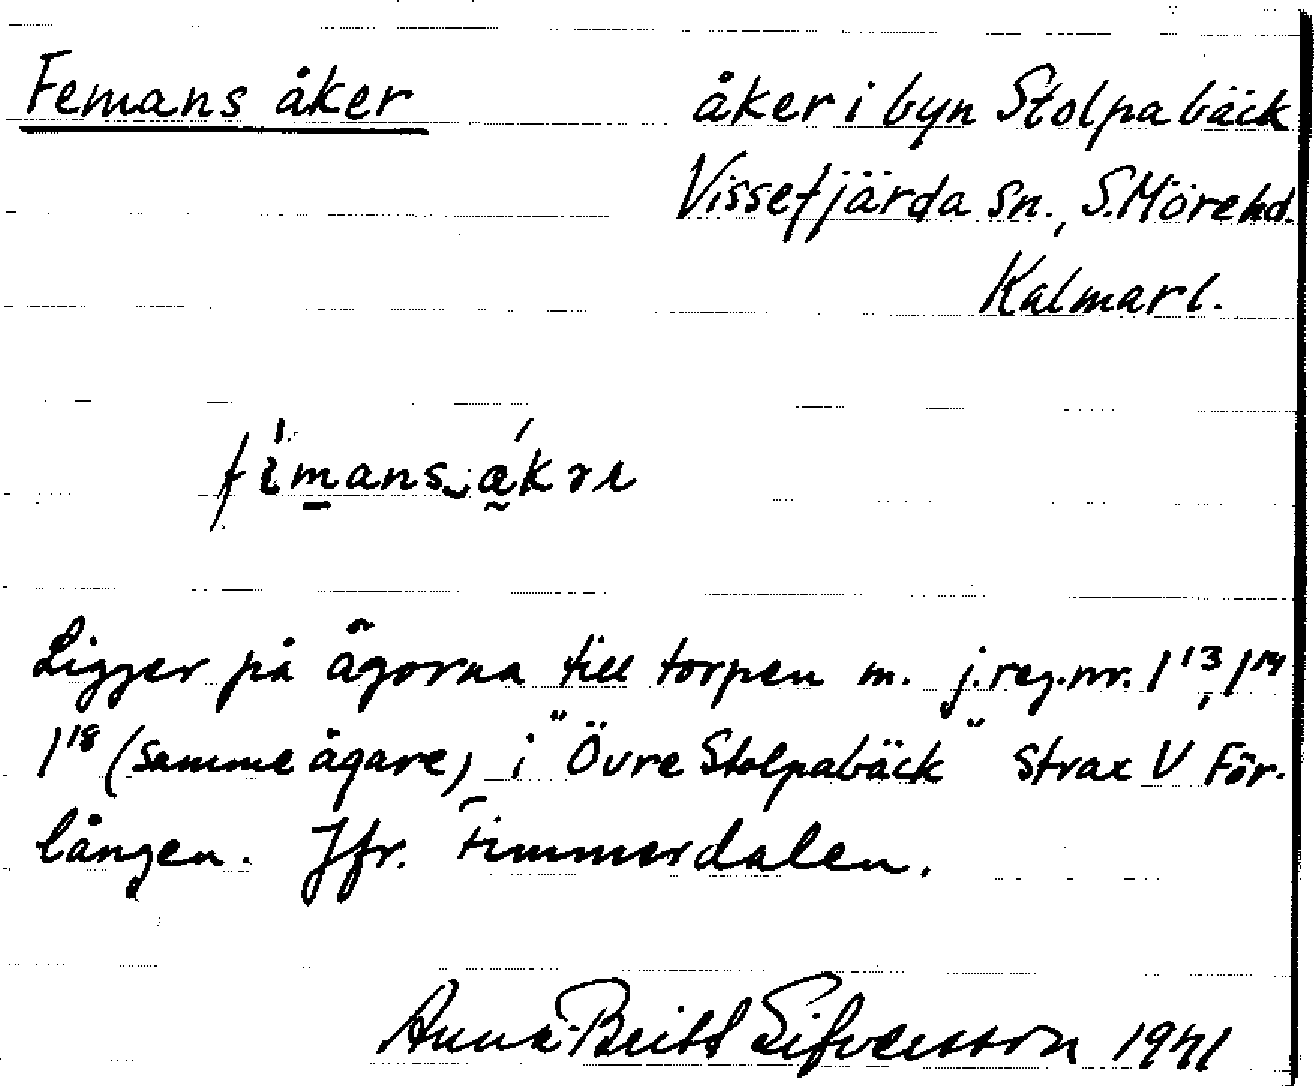 Femans åker
åker i byn Stolpabäck
Vissefjärda sn., S. Möre hd.
Kalmar l.
Ligger på ägorna till torpen m. j.reg.nr. 1¹³, 1¹⁴
1¹⁸ (samme ägare) i "Övre Stolpabäck" strax V För-
lången. Jfr. Fimmerdalen.
Anna-Britt Sifversson 1941